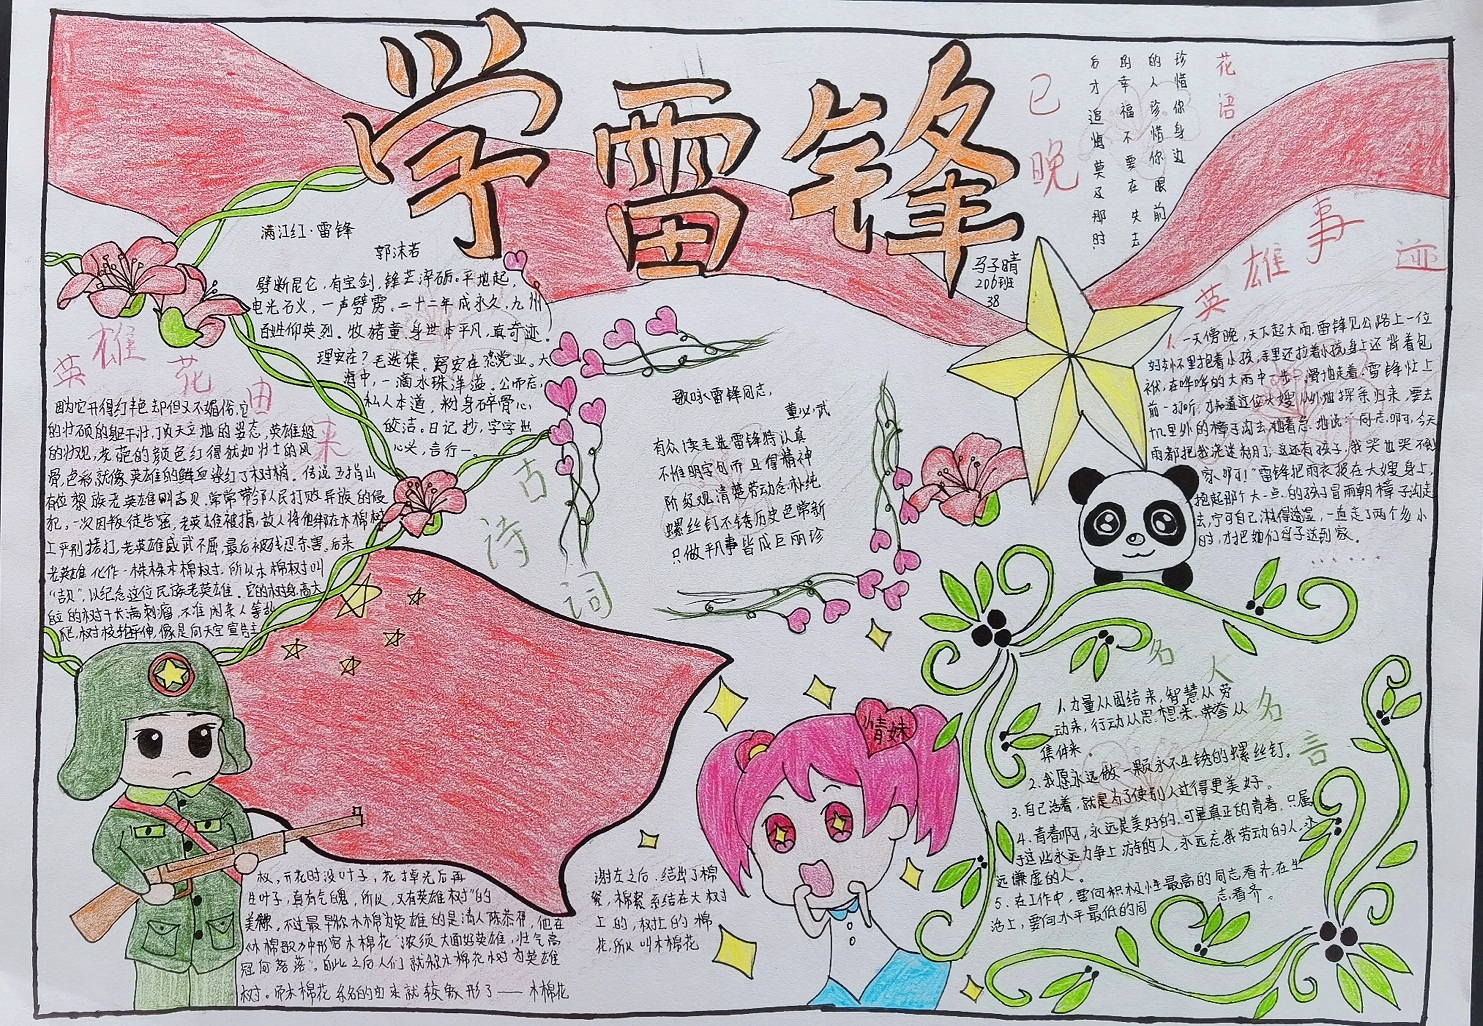 学雷锋
马子晴
206班
38
花语
珍惜你身边
的人珍惜你眼前
的幸福不要在失去
后才追悔莫及那时
已晚
满江红·雷锋
郭沫若
劈断昆仑,有宝剑,锋芒淬砺。平地起,
电光石火,一声劈雳,二十二年成永久,九州
百姓仰英烈。牧猪童,身世本平凡,真奇迹。
理安在?毛选集。
大
海中,一滴水珠洋溢。公而忘,
私人本道,粉身碎骨心,
皎洁。日记抄,字字出
心头,言行一。
古诗词
歌咏雷锋同志,
董必武
有众读毛选雷锋特认真
不惟明字句而且得精神
阶级观清楚劳动念朴纯
螺丝钉不锈历史色常新
只做平凡事皆成巨丽珍
英雄花由来
因为它开得红艳却但又不媚俗,它
的壮硕的躯干壮,顶天立地的姿态,英雄般
的壮观,花葩的颜色红得就如壮士的风
骨,色彩就像英雄的鲜血染红了树梢。传说五指山
有位黎族老英雄叫吉贝,常常带领人民打败异族的侵
犯,一次因叛徒告密,老英雄被捕,敌人将他绑在木棉树
上严刑拷打,老英雄威武不屈,最后被残忍杀害。后来
老英雄化作一株株木棉树,所以木棉树叫
“吉贝”,以纪念这位民族老英雄。它的树身高大,
的树干长满刺瘤,不准闲杂人等
爬,树枝
伸,像是向天空宣告主
权,开花时没叶子,花掉光后再
生叶子,真有气魄,所以,又有英雄树”的
美
。不过最早称木棉为英雄的是清人陈恭尹,他在
《木棉歌》中形容木棉花“浓须大面好英雄,壮气高
冠何落落”。自此之后人们就称木棉花树为英雄
树。而木棉花名的由来就较
形了——木棉花
谢在之后,结出了棉
絮,棉絮系结在大树
上的,树红的棉
花,所以叫木棉花
英雄事迹
1.一天傍晚,天下起大雨,雷锋见公路上一位
妇女怀里抱着小孩,手里还拉着小孩身上还背着包
袱,在哗哗的大雨中一步一滑地走着。雷锋赶上
前一打听,才知道这位大嫂从外地探亲归来,要去
十几里外的樟子沟去,她着急地说:“同志啊,今天
雨都把我浇迷糊了,这还有孩子,我哭也哭不到
家呀!”雷锋把雨衣披在大嫂身上,
抱起那个大一点的孩子冒雨朝樟子沟走
去,宁可自己淋得透湿,一直走了两个多小
时,才把她们母子送到家。
......
名人名言
1.力量从团结来,智慧从劳
动来,行动从思想来,荣誉从
集体来。
2.我愿永远做一颗永不生锈的螺丝钉。
3.自己活着,就是为了使别人过得更美好。
4.青春啊,永远是美好的,可是真正的青春,只属
于这些永远力争上游的人,永远忘我劳动的人,永
远谦虚的人。
5.在工作中,要向积极性最高的同志看齐,在生
活上,要向水平最低的同
志看齐。
情妹